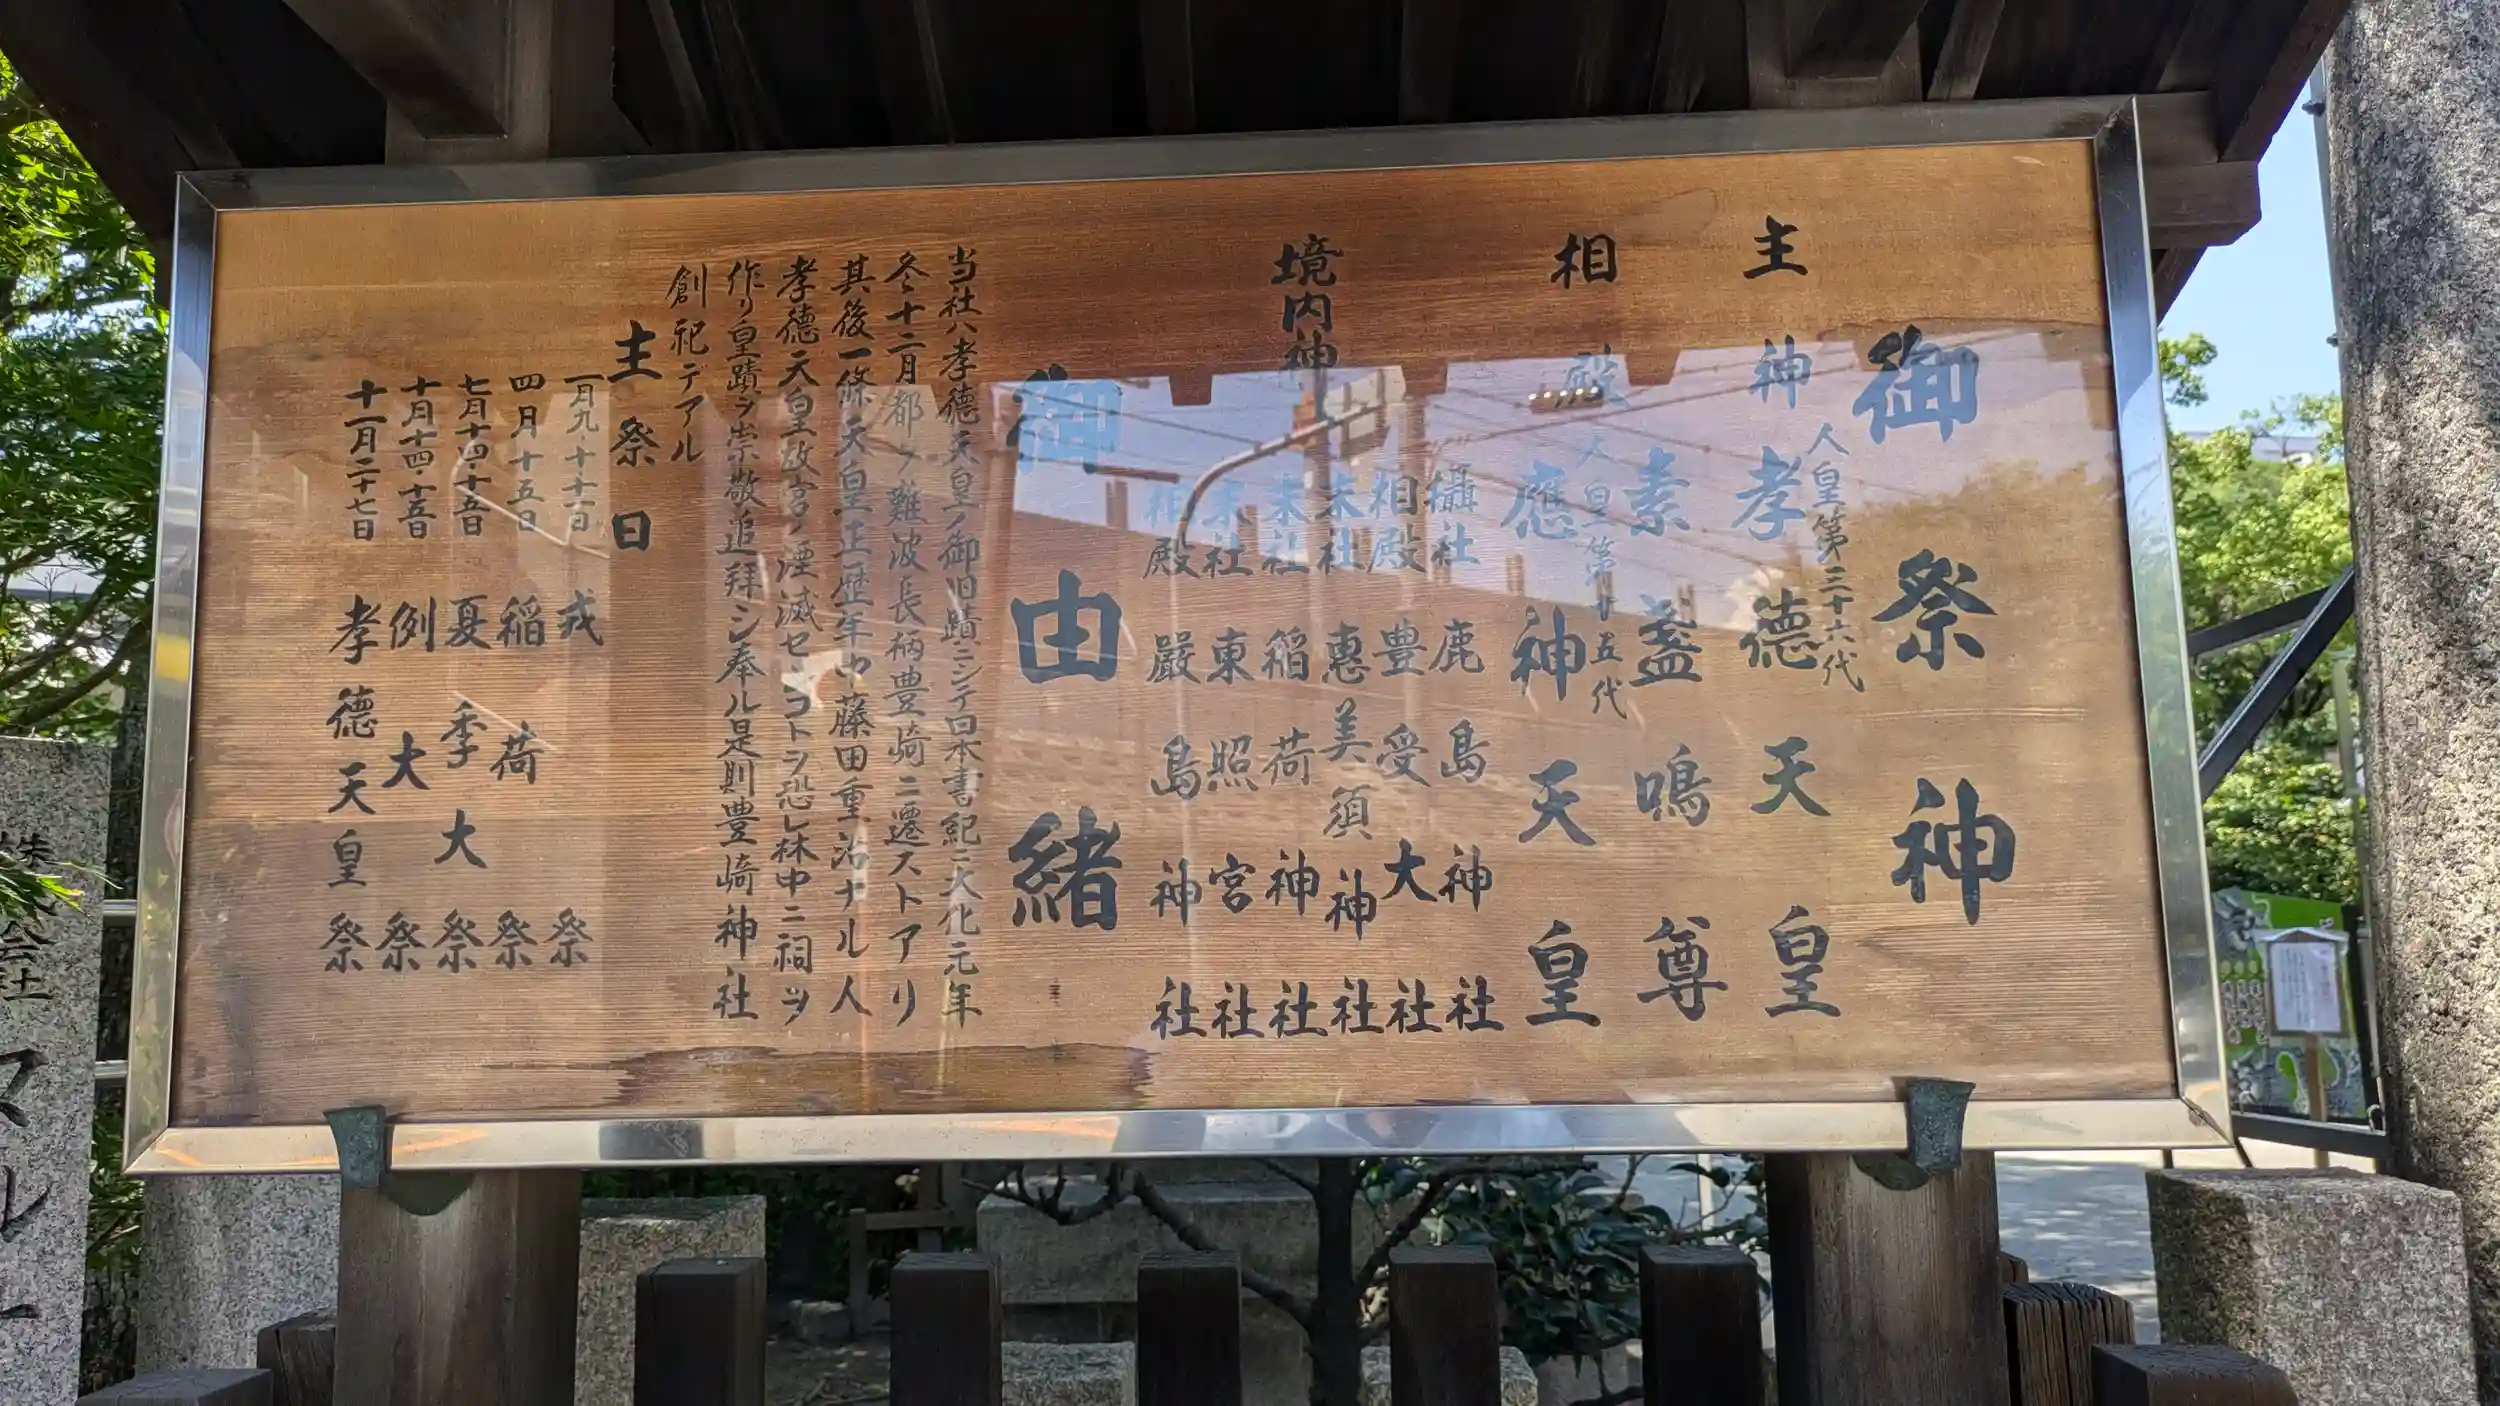 御祭神
主神 孝德天皇
人皇第三十六代
素盞鳴尊
相殿 應神天皇
人皇第十五代
境内神
攝社 鹿島神社
相殿 豊受大社
末社 惠美須神社
末社 稲荷神社
末社 東照宮社
相殿 嚴島神社
御由緒
当社ハ孝德天皇ノ御旧蹟ニシテ日本書紀ニ大化元年
冬十二月都ヲ難波長柄豊崎ニ遷ストアリ
其後一條天皇正歴年中藤田重治ナル人
孝德天皇故宮ノ湮滅センコトヲ恐レ林中ニ祠ヲ
作リ皇蹟ヲ崇敬追拜シ奉ル是則豊崎神社
創祀デアル
主祭日
一月九・十・十一日 戎祭
四月十五日 稲荷祭
七月十四・十五日 夏季大祭
十月十四・十五日 例大祭
十一月二十七日 孝德天皇祭